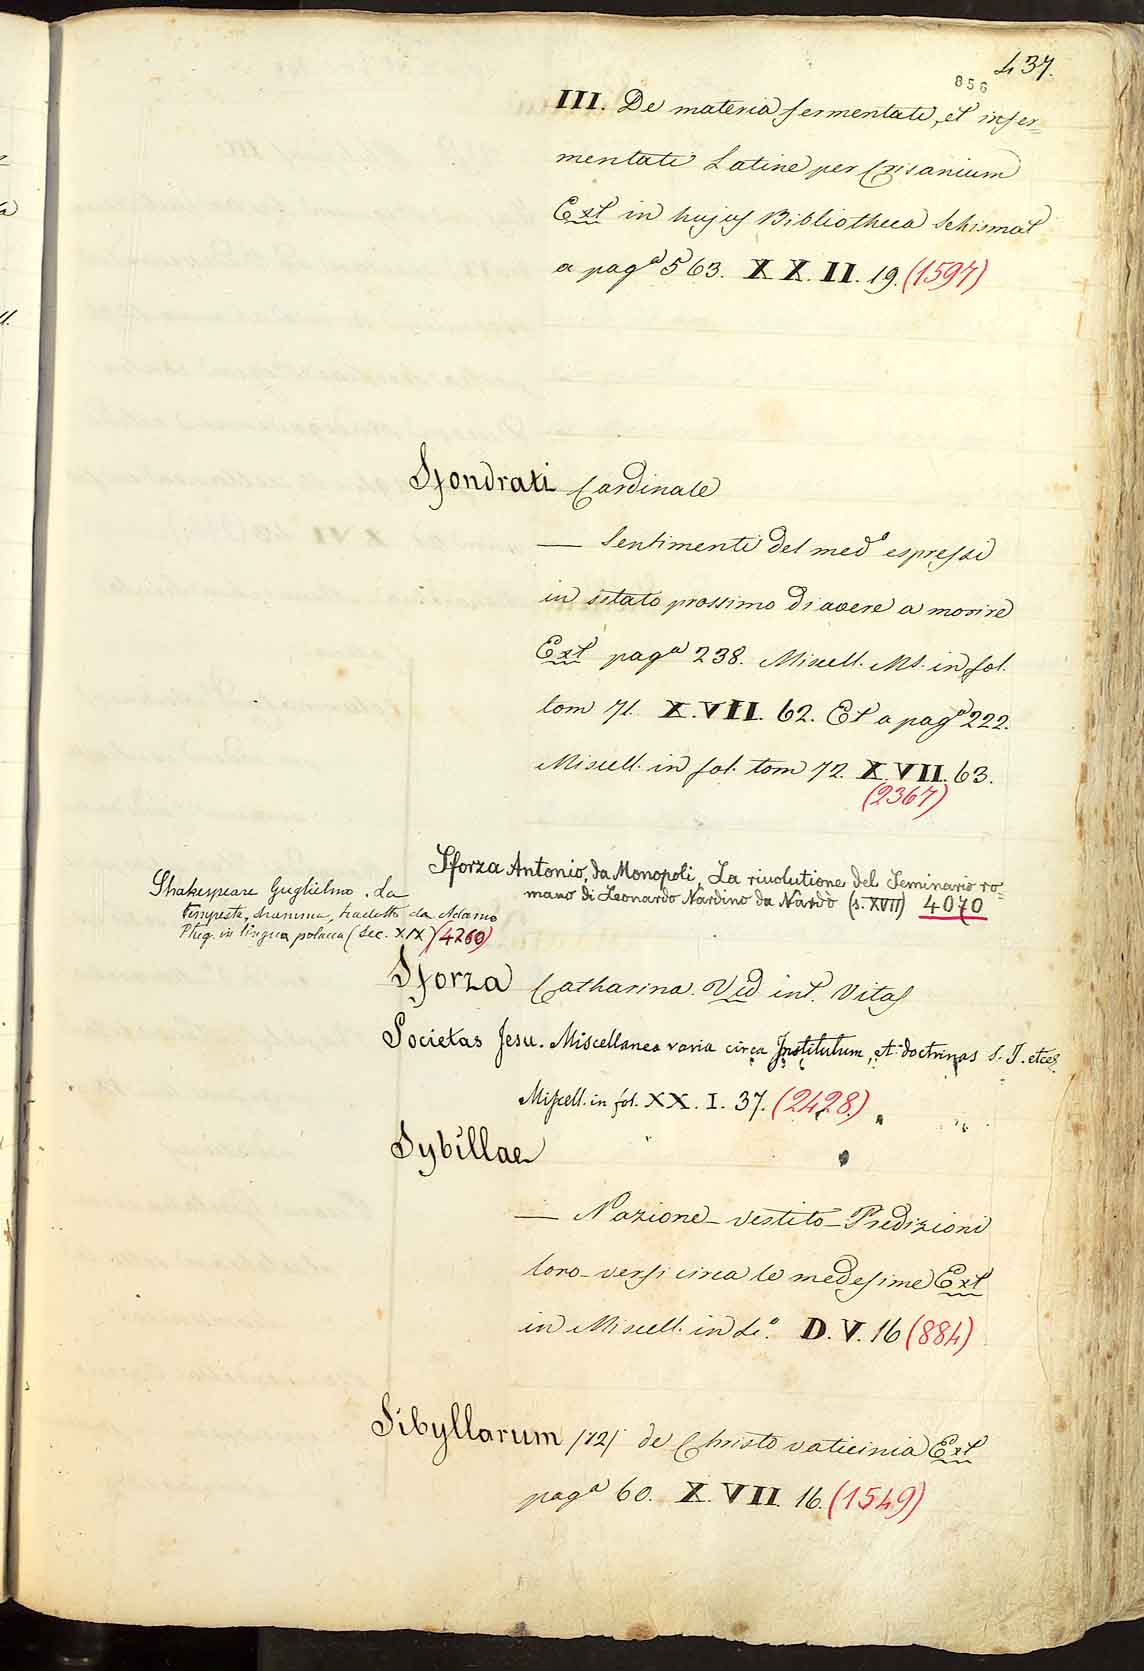 437.
856
III. De materia fermentati, et infer=
mentati Latine per Crisanium
Ext in hujus Bibliotheca Schismat
a pagª 563. XX.II. 19. (1597)
Sfondrati Cardinale
— Sentimenti del medº espressi
in istato prossimo di avere a morire
Ext pagª 238. Miscell. Ms. in fol.
tom 71. X.VII. 62. Et a pagª 222.
Miscell. in fol. tom 72. X.VII. 63.
(2367)
Sforza Antonio, da Monopoli, La rivolutione del Seminario ro=
mano di Leonardo Nardino da Nardò (s. XVII) 4070
Shakespeare Guglielmo. La
tempesta, dramma, tradotto da Adamo
Plug. in lingua polacca (Sec. XIX) (4260)
Sforza Catharina. Vid int. Vitas
Societas Jesu. Miscellanea varia circa Institutum, et doctrinas S. J. etces.
Miscell. in fol. XX. I. 37. (2428)
Sybillae
— Nazione – vestito – Predizioni
loro – versi circa le medesime Ext
in Miscell. in 4º. D.V. 16 (884)
Sibyllarum /12/ de Christo vaticinia Ext
pagª 60. X.VII. 16. (1549)